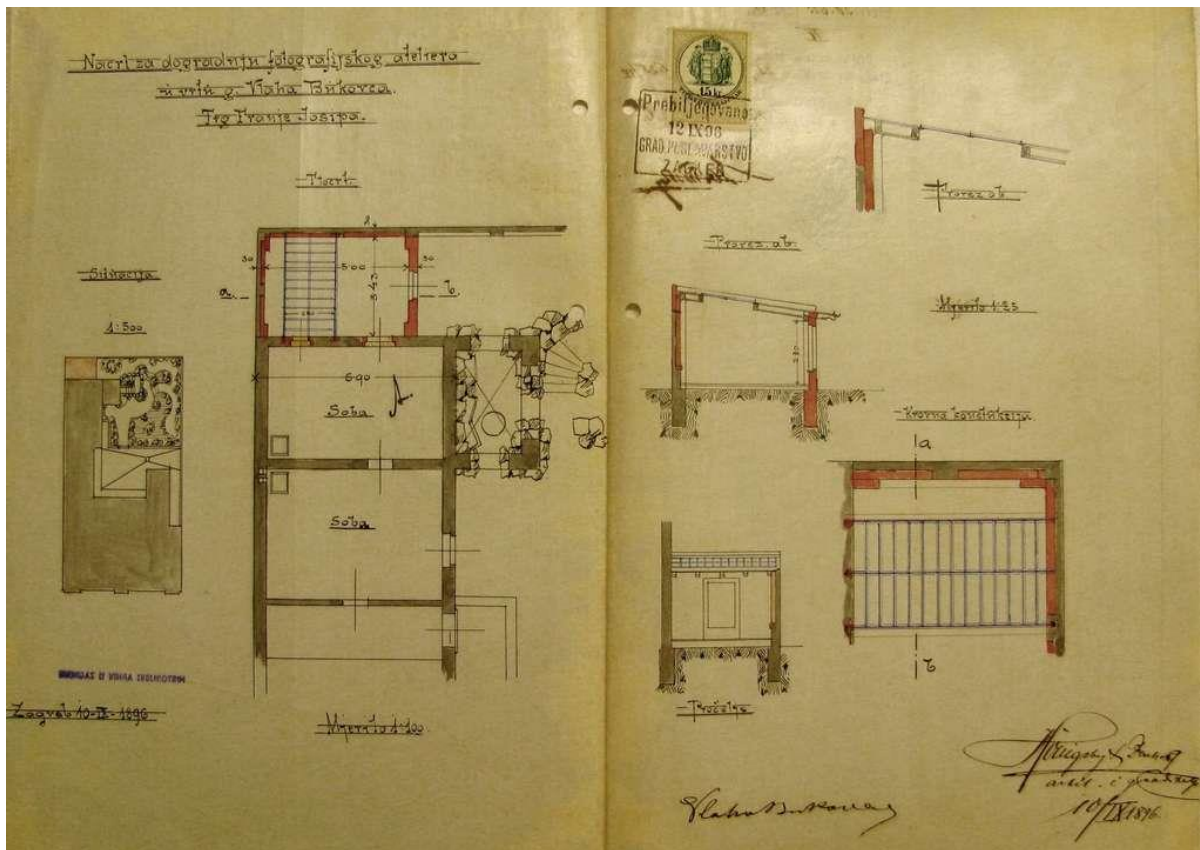 Nacrt za dogradnju fotografijskog ateliera
u vrtu g. Vlaha Bukovca.
Trg Franje Josipa.
Tlocrt.
Situacija
1:500
30
500
30
343
a.
b.
690
Soba
A
Soba
Zagreb 10-IX-1896
Mjerilo 1:100
15 kr
Prebiljegovano
12 IX 96
GRAD. POGLAVARSTVO
ZAGREB
Prorez ab
Prorez. ab.
Mjerilo 1:25
280
Krovna konstrukcija.
a
b
Pročelje
Vlaho Bukovac
arhit. i graditelj
10/IX 1896